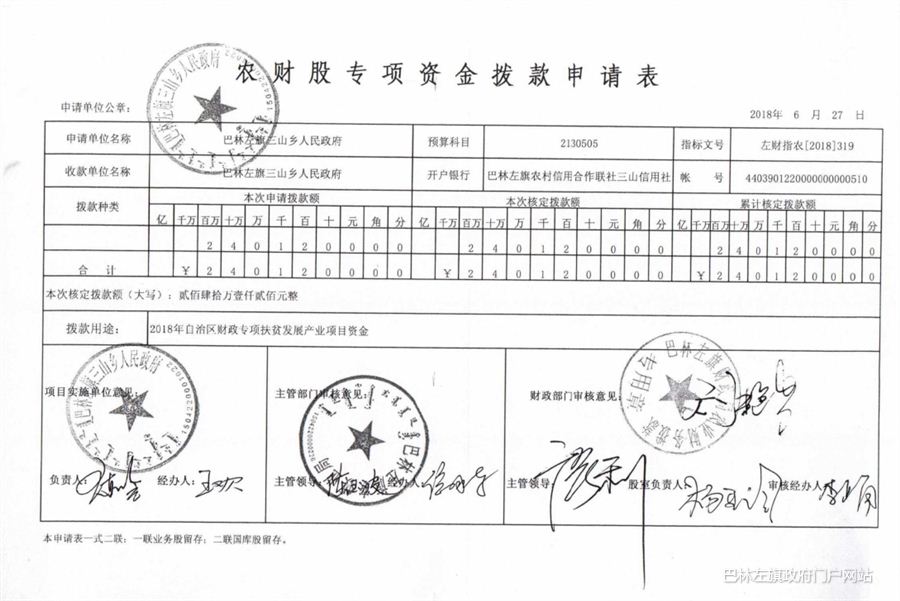 农财股专项资金拨款申请表
申请单位公章：
2018年 6 月 27 日
申请单位名称 巴林左旗三山乡人民政府 预算科目 2130505 指标文号 左财指农[2018]319
收款单位名称 巴林左旗三山乡人民政府 开户银行 巴林左旗农村信用合作联社三山信用社 帐 号 4403901220000000000510
拨款种类 本次申请拨款额 本次核定拨款额 累计核定拨款额
亿 千万 百万 十万 万 千 百 十 元 角 分 亿 千万 百万 十万 万 千 百 十 元 角 分 亿 千万 百万 十万 万 千 百 十 元 角 分
2 4 0 1 2 0 0 0 0 2 4 0 1 2 0 0 0 0 2 4 0 1 2 0 0 0 0
合 计 ¥ 2 4 0 1 2 0 0 0 0 ¥ 2 4 0 1 2 0 0 0 0 ¥ 2 4 0 1 2 0 0 0 0
本次核定拨款额（大写）：贰佰肆拾万壹仟贰佰元整
拨款用途： 2018年自治区财政专项扶贫发展产业项目资金
项目实施单位意见： 主管部门审核意见： 财政部门审核意见：
负责人： 经办人： 主管领导： 经办人： 主管领导： 股室负责人： 审核经办人：
本申请表一式二联：一联业务股留存；二联国库股留存。
巴林左旗三山乡人民政府
巴林左旗三山乡人民政府
专用章
巴林左旗政府门户网站